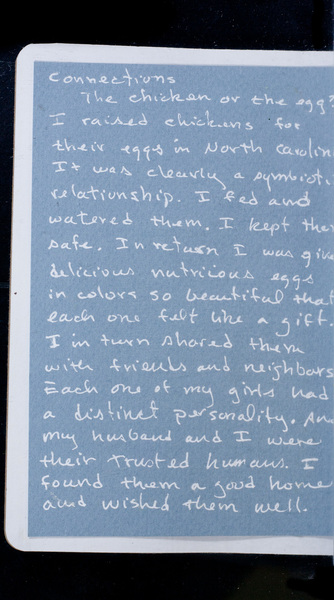 Connections
The chicken or the egg?
I raised chickens for
their eggs in North Carolin
It was clearly a symbioti
relationship. I fed and
watered them. I kept the
safe. In return I was give
delicious nutricous eggs
in colors so beautiful that
each one felt like a gift.
I in turn shared them
with friends and neighbors
Each one of my girls had
a distinct personality. An
my husband and I were
their trusted humans. I
found them a good home
and wished them well.